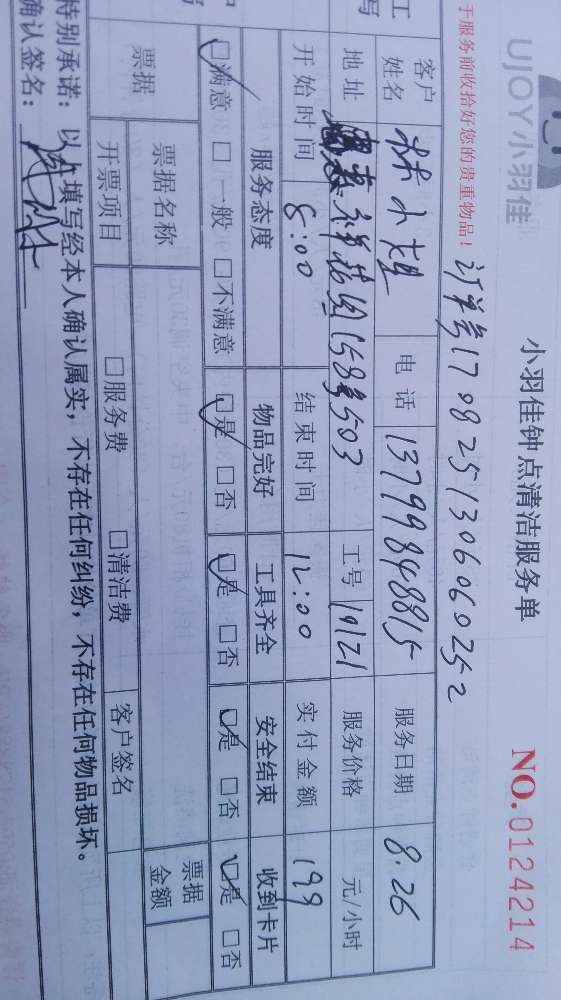 UJOY小羽佳
小羽佳钟点清洁服务单
NO.0124214
于服务前收拾好您的贵重物品!
订单号17082513060602 52
客户姓名 林小姐 电话 13799848815 服务日期 8.26
地址 祥 158号503 工号 19121 服务价格 元/小时
开始时间 8:00 结束时间 12:00 实付金额 199
服务态度 物品完好 工具齐全 安全结束 收到卡片
☑满意 □一般 □不满意 ☑是 □否 ☑是 □否 ☑是 □否 ☑是 □否
票据 票据名称 票据金额
开票项目 □服务费 □清洁费 客户签名
特别承诺:以上填写经本人确认属实,不存在任何纠纷,不存在任何物品损坏。
确认签名: